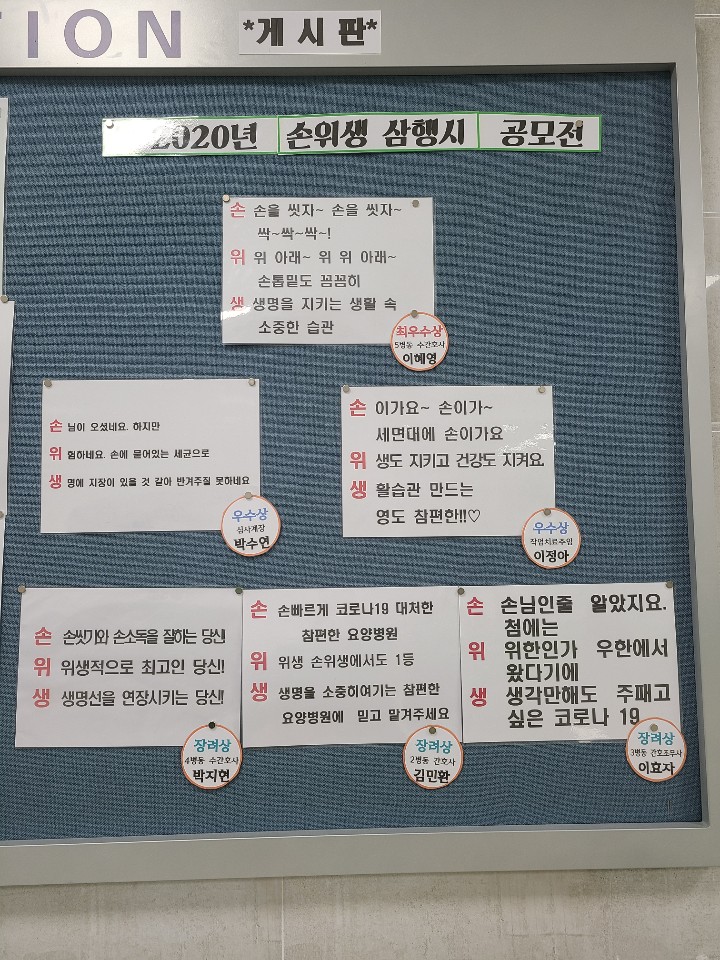 TION
*게시판*
2020년 손위생 삼행시 공모전
손 손을 씻자~ 손을 씻자~
싹~싹~싹~!
위 위 아래~ 위 위 아래~
손톱밑도 꼼꼼히
생 생명을 지키는 생활 속
소중한 습관
최우수상
5병동 수간호사
이혜영
손 님이 오셨네요. 하지만
위 험하네요. 손에 묻어있는 세균으로
생 명에 지장이 있을 것 같아 반겨주질 못하네요
우수상
심사계장
박수연
손 이가요~ 손이가~
세면대에 손이가요
위 생도 지키고 건강도 지켜요.
생 활습관 만드는
영도 참편한!!♡
우수상
작업치료주임
이정아
손 손씻기와 손소독을 잘하는 당신!
위 위생적으로 최고인 당신!
생 생명선을 연장시키는 당신!
장려상
4병동 수간호사
박지현
손 손빠르게 코로나19 대처한
참편한 요양병원
위 위생 손위생에서도 1등
생 생명을 소중히여기는 참편한
요양병원에 믿고 맡겨주세요
장려상
2병동 간호사
김민환
손 손님인줄 알았지요.
첨에는
위 위한인가 우한에서
왔다기에
생 생각만해도 주패고
싶은 코로나 19
장려상
3병동 간호조무사
이효자